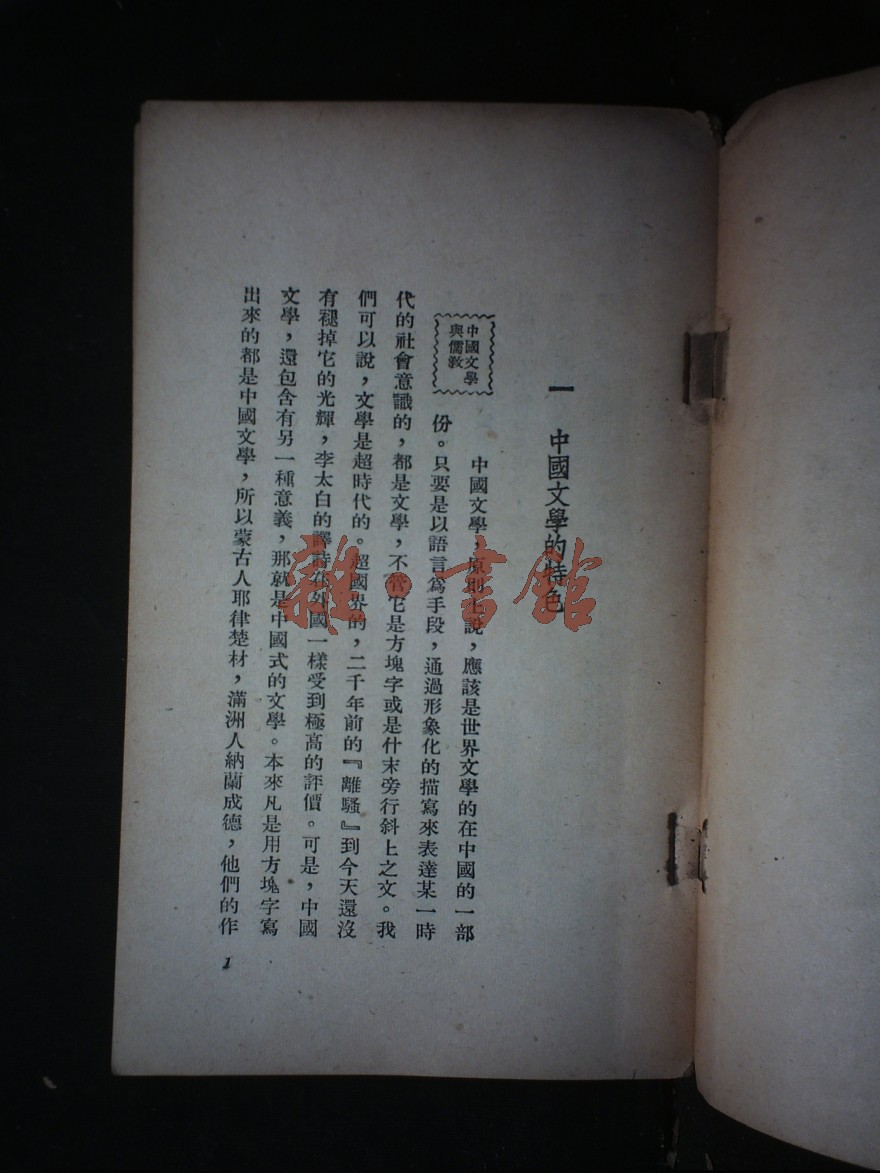 一 中國文學的特色
中國文學
與儒教
中國文學，原則上說，應該是世界文學的在中國的一部
份。只要是以語言爲手段，通過形象化的描寫來表達某一時
代的社會意識的，都是文學，不管它是方塊字或是什末旁行斜上之文。我
們可以說，文學是超時代的。超國界的，二千年前的『離騷』到今天還沒
有褪掉它的光輝，李太白的譯詩在外國一樣受到極高的評價。可是，中國
文學，還包含有另一種意義，那就是中國式的文學。本來凡是用方塊字寫
出來的都是中國文學，所以蒙古人耶律楚材，滿洲人納蘭成德，他們的作
1
雜·書館